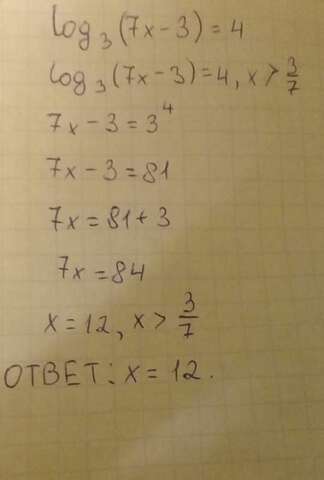 log₃(7x-3)=4
log₃(7x-3)=4, x>3/7
7x-3=3⁴
7x-3=81
7x=81+3
7x=84
x=12, x>3/7
ОТВЕТ: x=12.